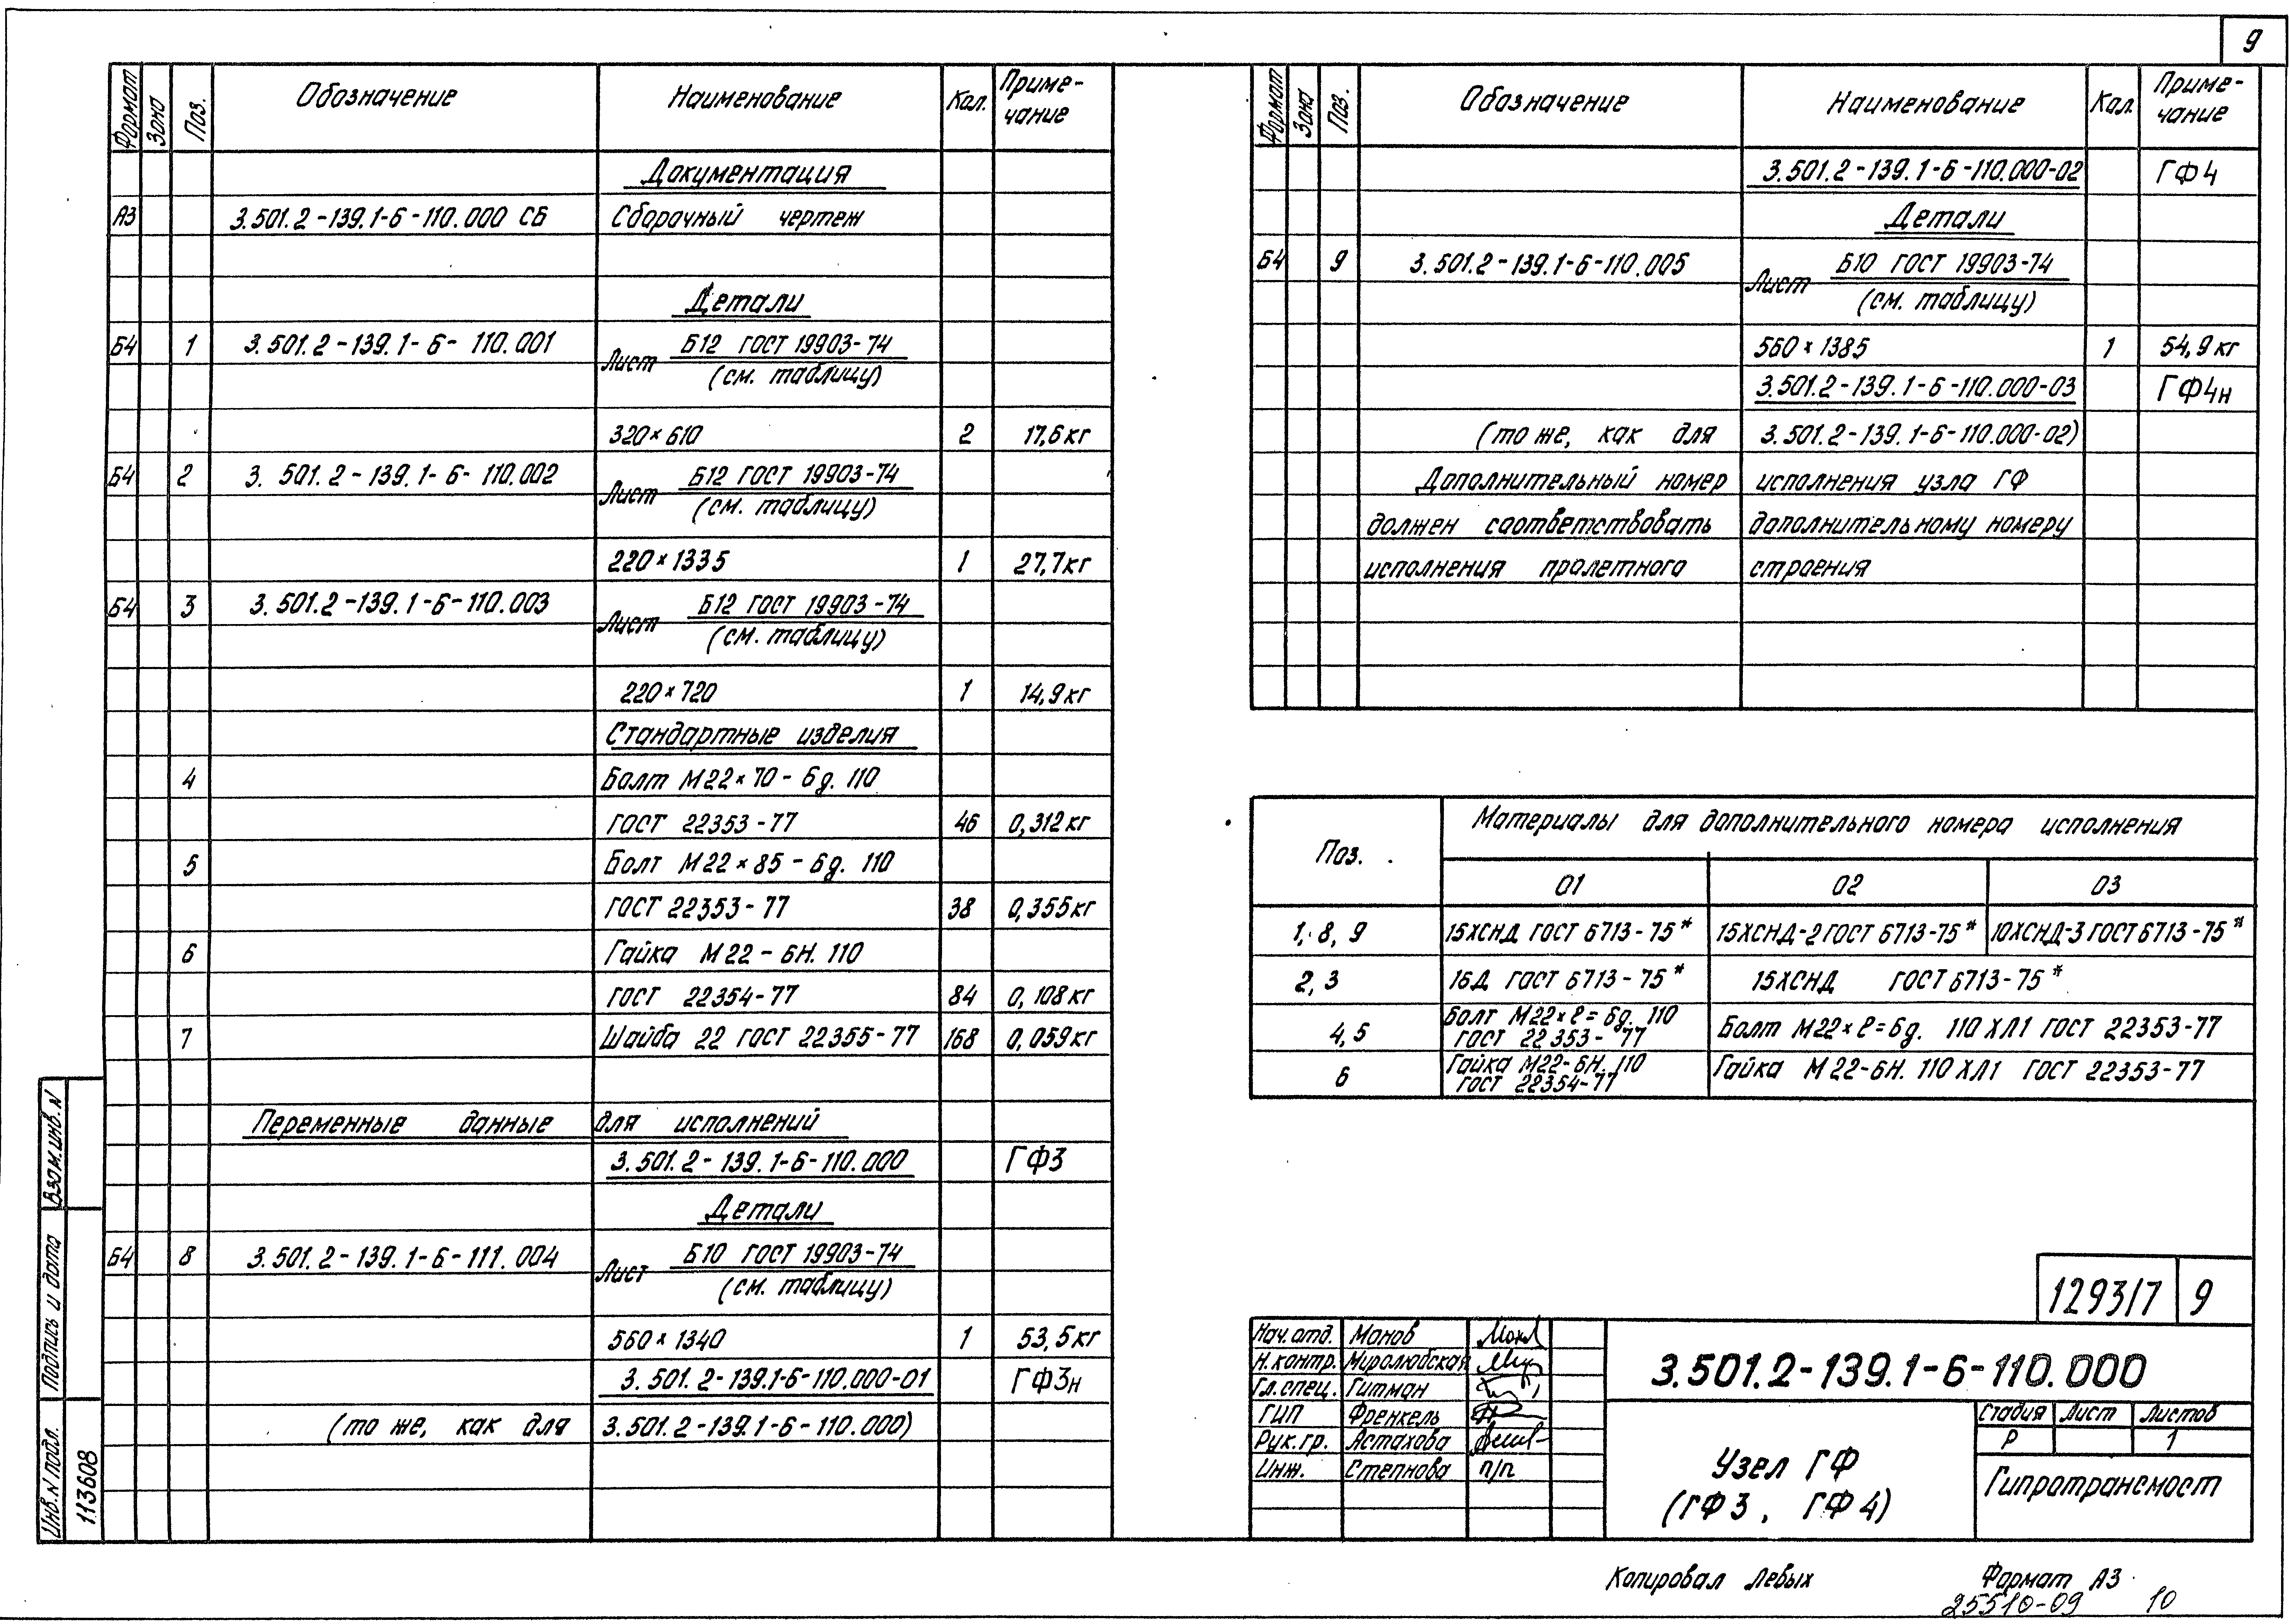 9
Формат Зона Поз. Обозначение Наименование Кол. Примечание
Документация
А3 3.501.2-139.1-6-110.000 СБ Сборочный чертеж
Детали
Б4 1 3.501.2-139.1-6-110.001 Лист Б12 ГОСТ 19903-74
(см. таблицу)
320×610 2 17,6кг
Б4 2 3.501.2-139.1-6-110.002 Лист Б12 ГОСТ 19903-74
(см. таблицу)
220×1335 1 27,7кг
Б4 3 3.501.2-139.1-6-110.003 Лист Б12 ГОСТ 19903-74
(см. таблицу)
220×720 1 14,9кг
Стандартные изделия
4 Болт М22×70-6g.110
ГОСТ 22353-77 46 0,312кг
5 Болт М22×85-6g.110
ГОСТ 22353-77 38 0,355кг
6 Гайка М22-6Н.110
ГОСТ 22354-77 84 0,108кг
7 Шайба 22 ГОСТ 22355-77 168 0,059кг
Переменные данные для исполнений
3.501.2-139.1-6-110.000 ГФ3
Детали
Б4 8 3.501.2-139.1-6-111.004 Лист Б10 ГОСТ 19903-74
(см. таблицу)
560×1340 1 53,5кг
3.501.2-139.1-6-110.000-01 ГФ3н
(то же, как для 3.501.2-139.1-6-110.000)
Формат Зона Поз. Обозначение Наименование Кол. Примечание
3.501.2-139.1-6-110.000-02 ГФ4
Детали
Б4 9 3.501.2-139.1-6-110.005 Лист Б10 ГОСТ 19903-74
(см. таблицу)
560×1385 1 54,9кг
3.501.2-139.1-6-110.000-03 ГФ4н
(то же, как для 3.501.2-139.1-6-110.000-02)
Дополнительный номер исполнения узла ГФ
должен соответствовать дополнительному номеру
исполнения пролетного строения
Поз. Материалы для дополнительного номера исполнения
01 02 03
1, 8, 9 15ХСНД ГОСТ 6713-75* 15ХСНД-2 ГОСТ 6713-75* 10ХСНД-3 ГОСТ 6713-75*
2, 3 16Д ГОСТ 6713-75* 15ХСНД ГОСТ 6713-75*
4, 5 Болт М22×ℓ=6g.110
ГОСТ 22353-77 Болт М22×ℓ=6g. 110 ХЛ1 ГОСТ 22353-77
6 Гайка М22-6Н.110
ГОСТ 22354-77 Гайка М22-6Н.110 ХЛ1 ГОСТ 22353-77
1293/7 9
Нач.отд. Монов
Н.контр. Миролюбская
Гл.спец. Гитман
ГИП Френкель
Рук.гр. Астахова
Инж. Степнова п/п
3.501.2-139.1-6-110.000
Узел ГФ
(ГФ3, ГФ4)
Стадия Лист Листов
Р 1
Гипротрансмост
Взам.инв.N
Подпись и дата
Инв.N подл.
113608
Копировал Левых Формат А3
25510-09 10